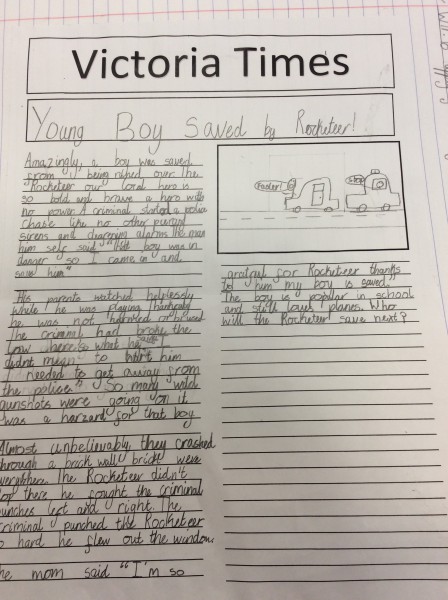 Victoria Times
Young Boy Saved by Rocketeer!
Amazingly, a boy was saved
from being ran over. The
"Rocketeer our local hero is
so bold and brave a hero with
no power. A criminal started a police
chase like no other
sirens and alarms the man
him self said "that boy was in
danger so I came on and
save him"
His parents watched helplessly
while he was playing
he was not harmed or
The criminal had broke the
law here's what he
didnt mean to hurt him
needed to get away from
the police" So many wild
gunshots were going on it
was a harzard for that boy
Almost unbelievably they crashed
through a brick wall bricks were
everywhere. The Rocketeer didn't
top there he fought the criminal
unches left and right. The
criminal punched the Rocketeer
o hard he flew out the window.
he mom said "I'm so
Faster!
Stop
grateful for Rocketeer thanks
to him my boy is saved.
The boy is popular in school
and still loves planes. Who
will the Rocketeer save next?